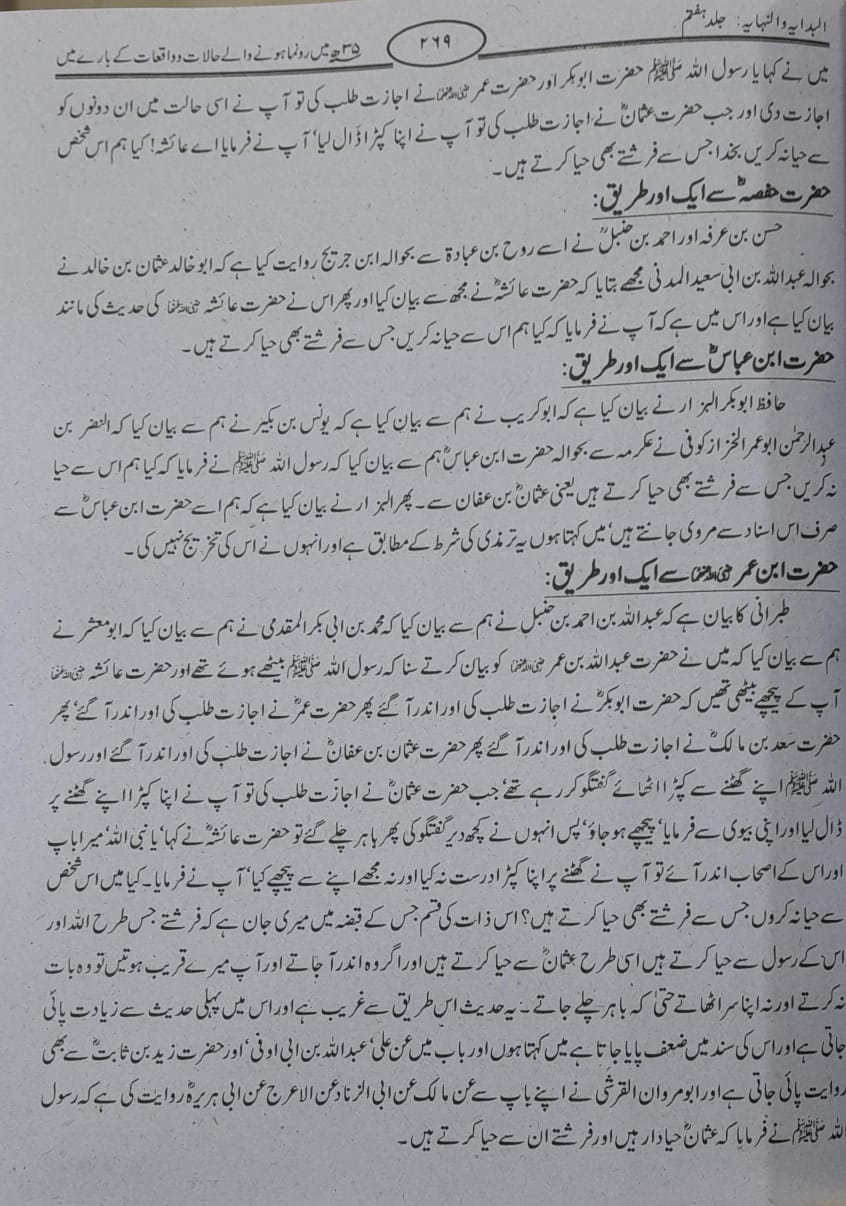 البدایہ والنہایہ: جلد ہفتم
۲۶۹
۳۵ھ میں رونما ہونے والے حالات و واقعات کے بارے میں
میں نے کہا یا رسول اللہ ﷺ حضرت ابوبکر اور حضرت عمر رضی اللہ عنہما نے اجازت طلب کی تو آپ نے اسی حالت میں ان دونوں کو
اجازت دی اور جب حضرت عثمانؓ نے اجازت طلب کی تو آپ نے اپنا کپڑا ڈال لیا' آپ نے فرمایا اے عائشہ! کیا ہم اس شخص
سے حیا نہ کریں بخدا جس سے فرشتے بھی حیا کرتے ہیں۔
حضرت حفصہؓ سے ایک اور طریق:
حسن بن عرفہ اور احمد بن حنبلؒ نے اسے روح بن عبادۃ سے بحوالہ ابن جریج روایت کیا ہے کہ ابو خالد عثمان بن خالد نے
بحوالہ عبداللہ بن ابی سعید المدنی مجھے بتایا کہ حضرت عائشہؓ نے مجھ سے بیان کیا اور پھر اس نے حضرت عائشہ رضی اللہ عنہا کی حدیث کی مانند
بیان کیا ہے اور اس میں ہے کہ آپ نے فرمایا کہ کیا ہم اس سے حیا نہ کریں جس سے فرشتے بھی حیا کرتے ہیں۔
حضرت ابن عباسؓ سے ایک اور طریق:
حافظ ابوبکر البزار نے بیان کیا ہے کہ ابوکریب نے ہم سے بیان کیا ہے کہ یونس بن بکیر نے ہم سے بیان کیا کہ النضر بن
عبدالرحمٰن ابو عمر الخزاز کوفی نے عکرمہ سے بحوالہ حضرت ابن عباسؓ ہم سے بیان کیا کہ رسول اللہ ﷺ نے فرمایا کہ کیا ہم اس سے حیا
نہ کریں جس سے فرشتے بھی حیا کرتے ہیں یعنی عثمانؓ بن عفان سے۔ پھر البزار نے بیان کیا ہے کہ ہم اسے حضرت ابن عباسؓ سے
صرف اس اسناد سے مروی جانتے ہیں' میں کہتا ہوں یہ ترمذی کی شرط کے مطابق ہے اور انہوں نے اس کی تخریج نہیں کی۔
حضرت ابن عمر رضی اللہ عنہما سے ایک اور طریق:
طبرانی کا بیان ہے کہ عبداللہ بن احمد بن حنبل نے ہم سے بیان کیا کہ محمد بن ابی بکر المقدمی نے ہم سے بیان کیا کہ ابو معشر نے
ہم سے بیان کیا کہ میں نے حضرت عبداللہ بن عمر رضی اللہ عنہما کو بیان کرتے سنا کہ رسول اللہ ﷺ بیٹھے ہوئے تھے اور حضرت عائشہ رضی اللہ عنہا
آپ کے پیچھے بیٹھی تھیں کہ حضرت ابوبکرؓ نے اجازت طلب کی اور اندر آ گئے پھر حضرت عمرؓ نے اجازت طلب کی اور اندر آ گئے' پھر
حضرت سعد بن مالکؓ نے اجازت طلب کی اور اندر آ گئے پھر حضرت عثمان بن عفانؓ نے اجازت طلب کی اور اندر آ گئے اور رسول
اللہ ﷺ اپنے گھٹنے سے کپڑا اٹھائے گفتگو کر رہے تھے' جب حضرت عثمانؓ نے اجازت طلب کی تو آپ نے اپنا کپڑا اپنے گھٹنے پر
ڈال لیا اور اپنی بیوی سے فرمایا' پیچھے ہو جاؤ' پس انہوں نے کچھ دیر گفتگو کی پھر باہر چلے گئے تو حضرت عائشہؓ نے کہا' یا نبی اللہ' میرا باپ
اور اس کے اصحاب اندر آئے تو آپ نے گھٹنے پر اپنا کپڑا درست نہ کیا اور نہ مجھے اپنے سے پیچھے کیا' آپ نے فرمایا۔ کیا میں اس شخص
سے حیا نہ کروں جس سے فرشتے بھی حیا کرتے ہیں؟ اس ذات کی قسم جس کے قبضہ میں میری جان ہے کہ فرشتے جس طرح اللہ اور
اس کے رسول سے حیا کرتے ہیں اسی طرح عثمانؓ سے حیا کرتے ہیں اور اگر وہ اندر آ جاتے اور آپ میرے قریب ہوتیں تو وہ بات
نہ کرتے اور نہ اپنا سر اٹھاتے حتیٰ کہ باہر چلے جاتے۔ یہ حدیث اس طریق سے غریب ہے اور اس میں پہلی حدیث سے زیادت پائی
جاتی ہے اور اس کی سند میں ضعف پایا جاتا ہے میں کہتا ہوں اور باب میں عن علی' عبداللہ بن ابی اوفی' اور حضرت زید بن ثابتؓ سے بھی
روایت پائی جاتی ہے اور ابو مروان القرشی نے اپنے باپ سے عن مالک عن ابی الزناد عن الاعرج عن ابی ہریرہؓ روایت کی ہے کہ رسول
اللہ ﷺ نے فرمایا کہ عثمانؓ حیادار ہیں اور فرشتے ان سے حیا کرتے ہیں۔